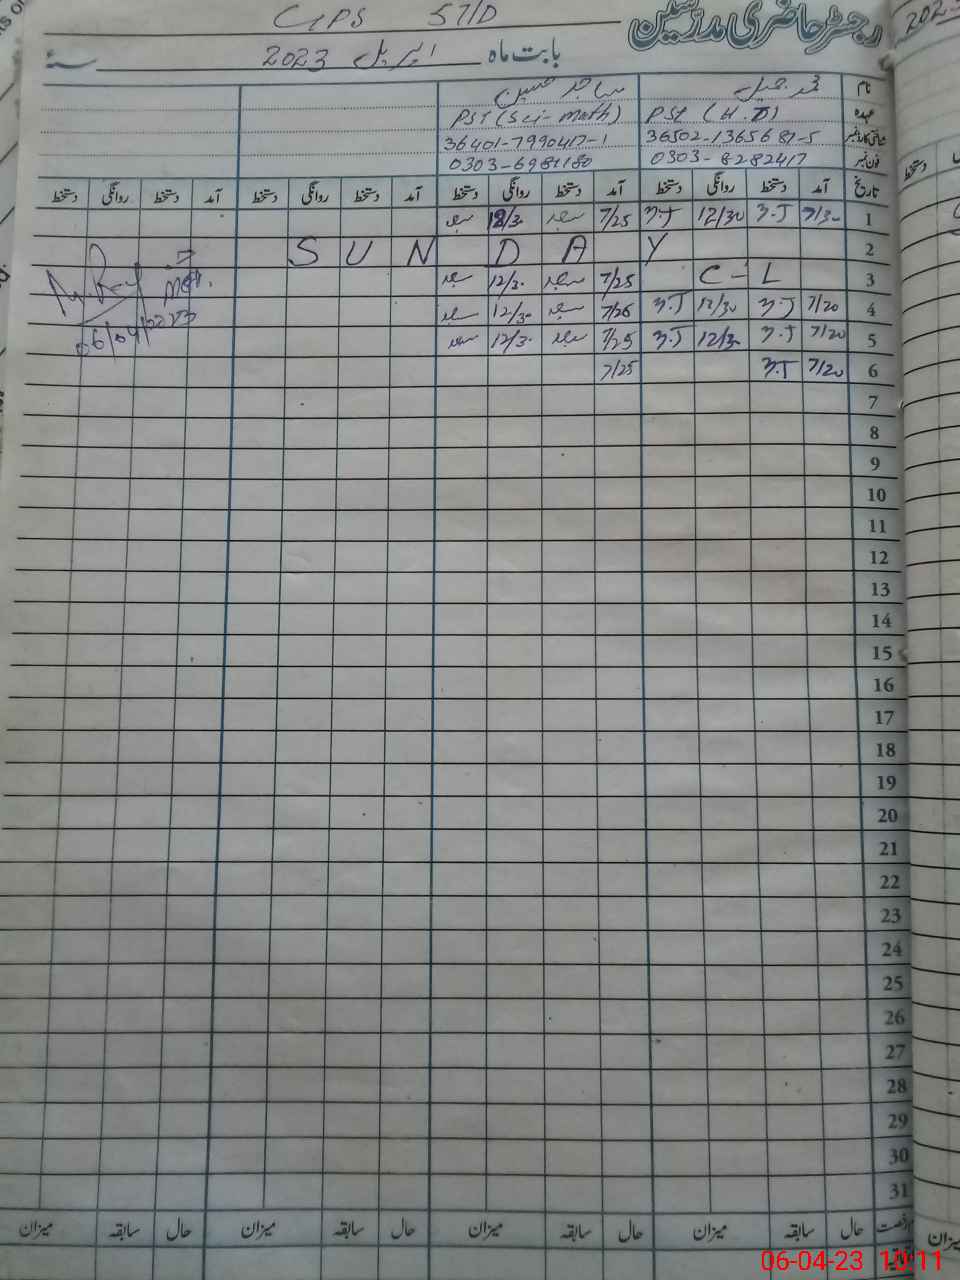 GPS 57/D
رجسٹر حاضری مدرسین
بابت ماہ اپریل 2023 سنہ
نام ساجد حسین
عہدہ PST (H.T) PST (Sci-Math)
شناختی کارڈ نمبر 36502-1365687-5 36401-7990417-1
فون نمبر 0303-8282417 0303-6981180
تاریخ آمد دستخط روانگی دستخط آمد دستخط روانگی دستخط آمد دستخط روانگی دستخط آمد دستخط روانگی دستخط
1 7/30 M.J 12/30 M.J 7/25 ساجد 12/30 ساجد
2 S U N D A Y
3 C-L 7/25 ساجد 12/30 ساجد
4 7/20 M.J 12/30 M.J 7/25 ساجد 12/30 ساجد
5 7/20 M.J 12/30 M.J 7/25 ساجد 12/30 ساجد
06/04/2023
6 7/20 M.J 7/25
7
8
9
10
11
12
13
14
15
16
17
18
19
20
21
22
23
24
25
26
27
28
29
30
31
حال سابقہ میزان حال سابقہ میزان حال سابقہ میزان حال سابقہ میزان
06-04-23 10:11